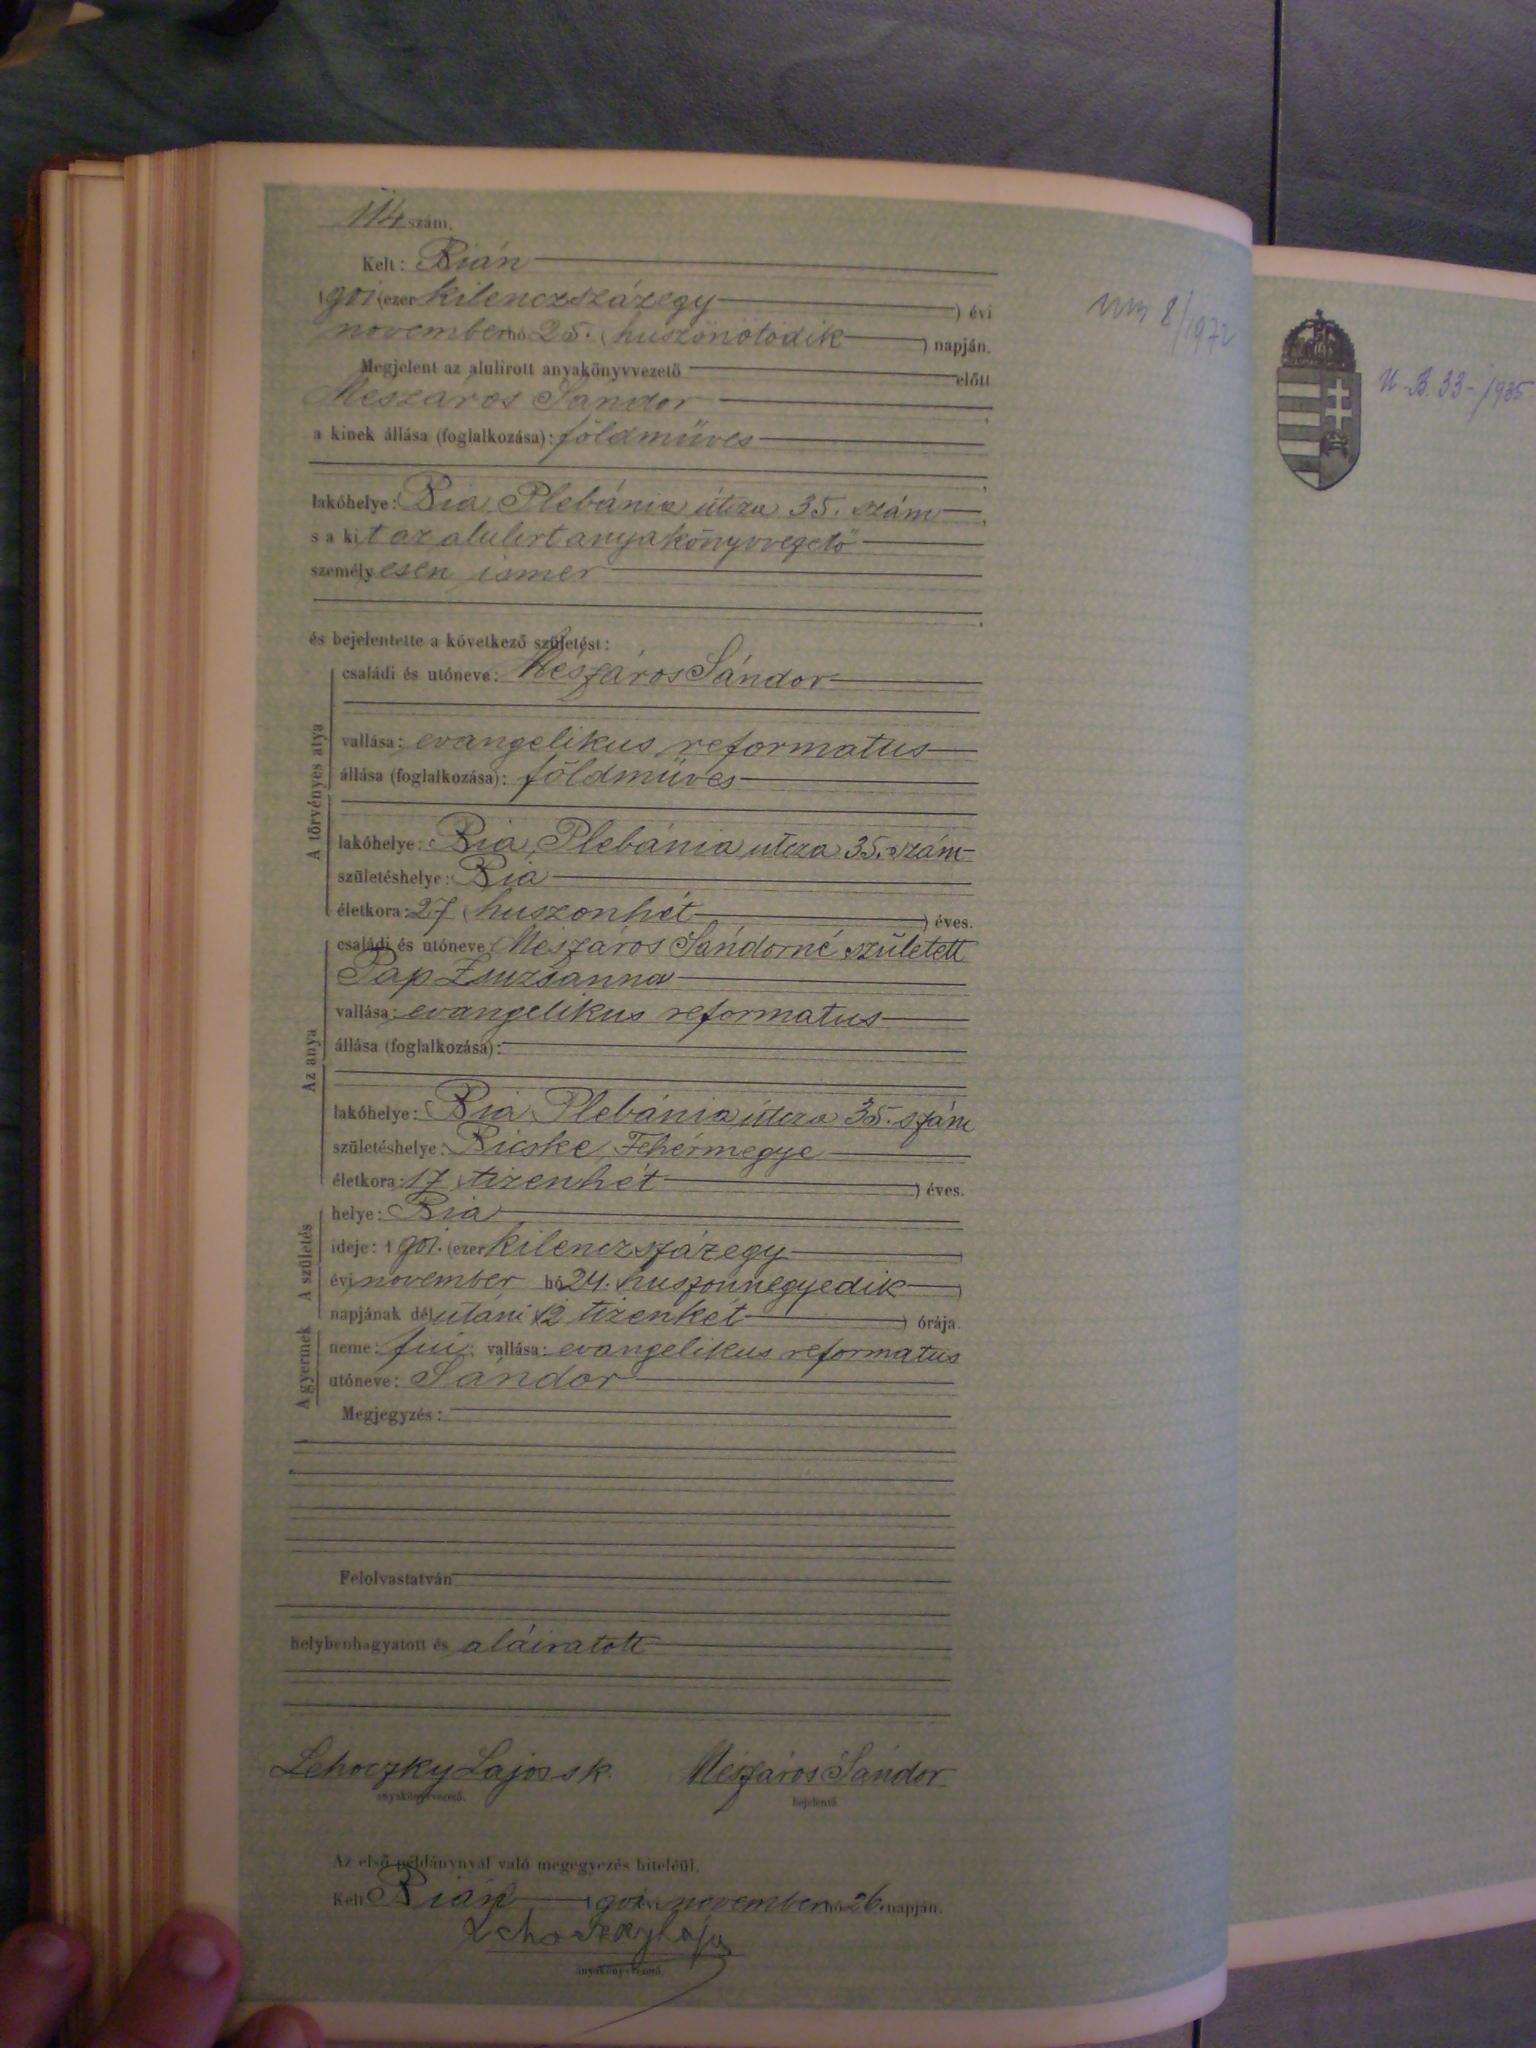 114 szám.
Kelt: Bián
1901 (ezer kilenczszázegy) évi
november hó 25. (huszonötödik) napján.
Megjelent az alulirott anyakönyvvezető előtt
Mészáros Sándor
a kinek állása (foglalkozása): földmüves
lakóhelye: Bia Plebánia útcza 35. szám
s a kit az alulirt anyakönyvvezető
személyesen ismer
és bejelentette a következő születést:
A törvényes atya
családi és utóneve: Mészáros Sándor
vallása: evangelikus reformatus
állása (foglalkozása): földmüves
lakóhelye: Bia, Plebánia utcza 35. szám
születéshelye: Bia
életkora: 27 (huszonhét) éves.
Az anya
családi és utóneve: Mészáros Sándorné született
Pap Zsuzsanna
vallása: evangelikus reformatus
állása (foglalkozása):
lakóhelye: Bia Plebánia útcza 35. szám
születéshelye: Bicske, Fehérmegye
életkora: 17 (tizenhét) éves.
A születés
helye: Bia
ideje: 1901. (ezer kilenczszázegy)
évi november hó 24. huszonnegyedik)
napjának délutáni 12 tizenkét) órája.
A gyermek
neme: fiu; vallása: evangelikus reformatus
utóneve: Sándor
Megjegyzés:
Felolvastatván
helybenhagyatott és aláiratott
Lehoczky Lajos s.k. Mészáros Sándor
anyakönyvvezető. bejelentő.
Az első példánynyal való megegyezés hiteléül.
Kelt Bián 1901 évi november hó 26. napján.
Lehoczky Lajos
anyakönyvvezető.
8/1972
U-B. 33-/1935